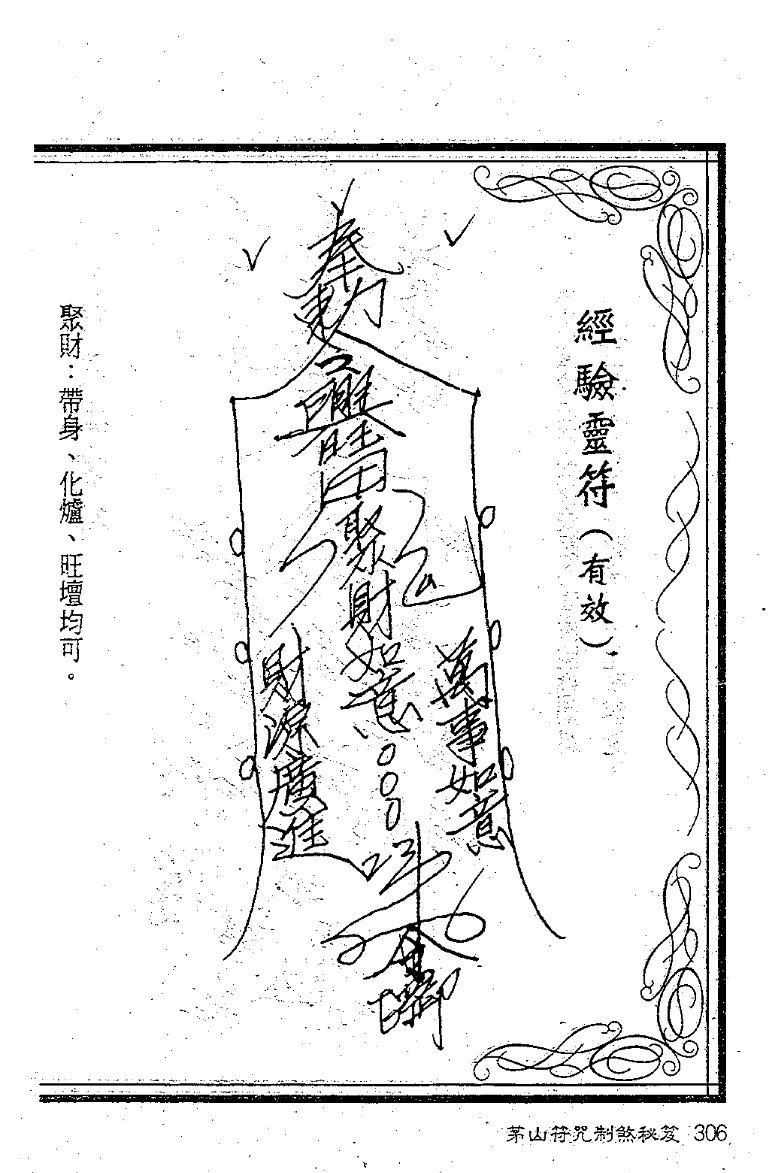 經驗靈符(有效)
奉勅
聚財如意
萬事如意
財源廣進
聚財：帶身、化爐、旺壇均可。
茅山符咒制煞秘笈 306